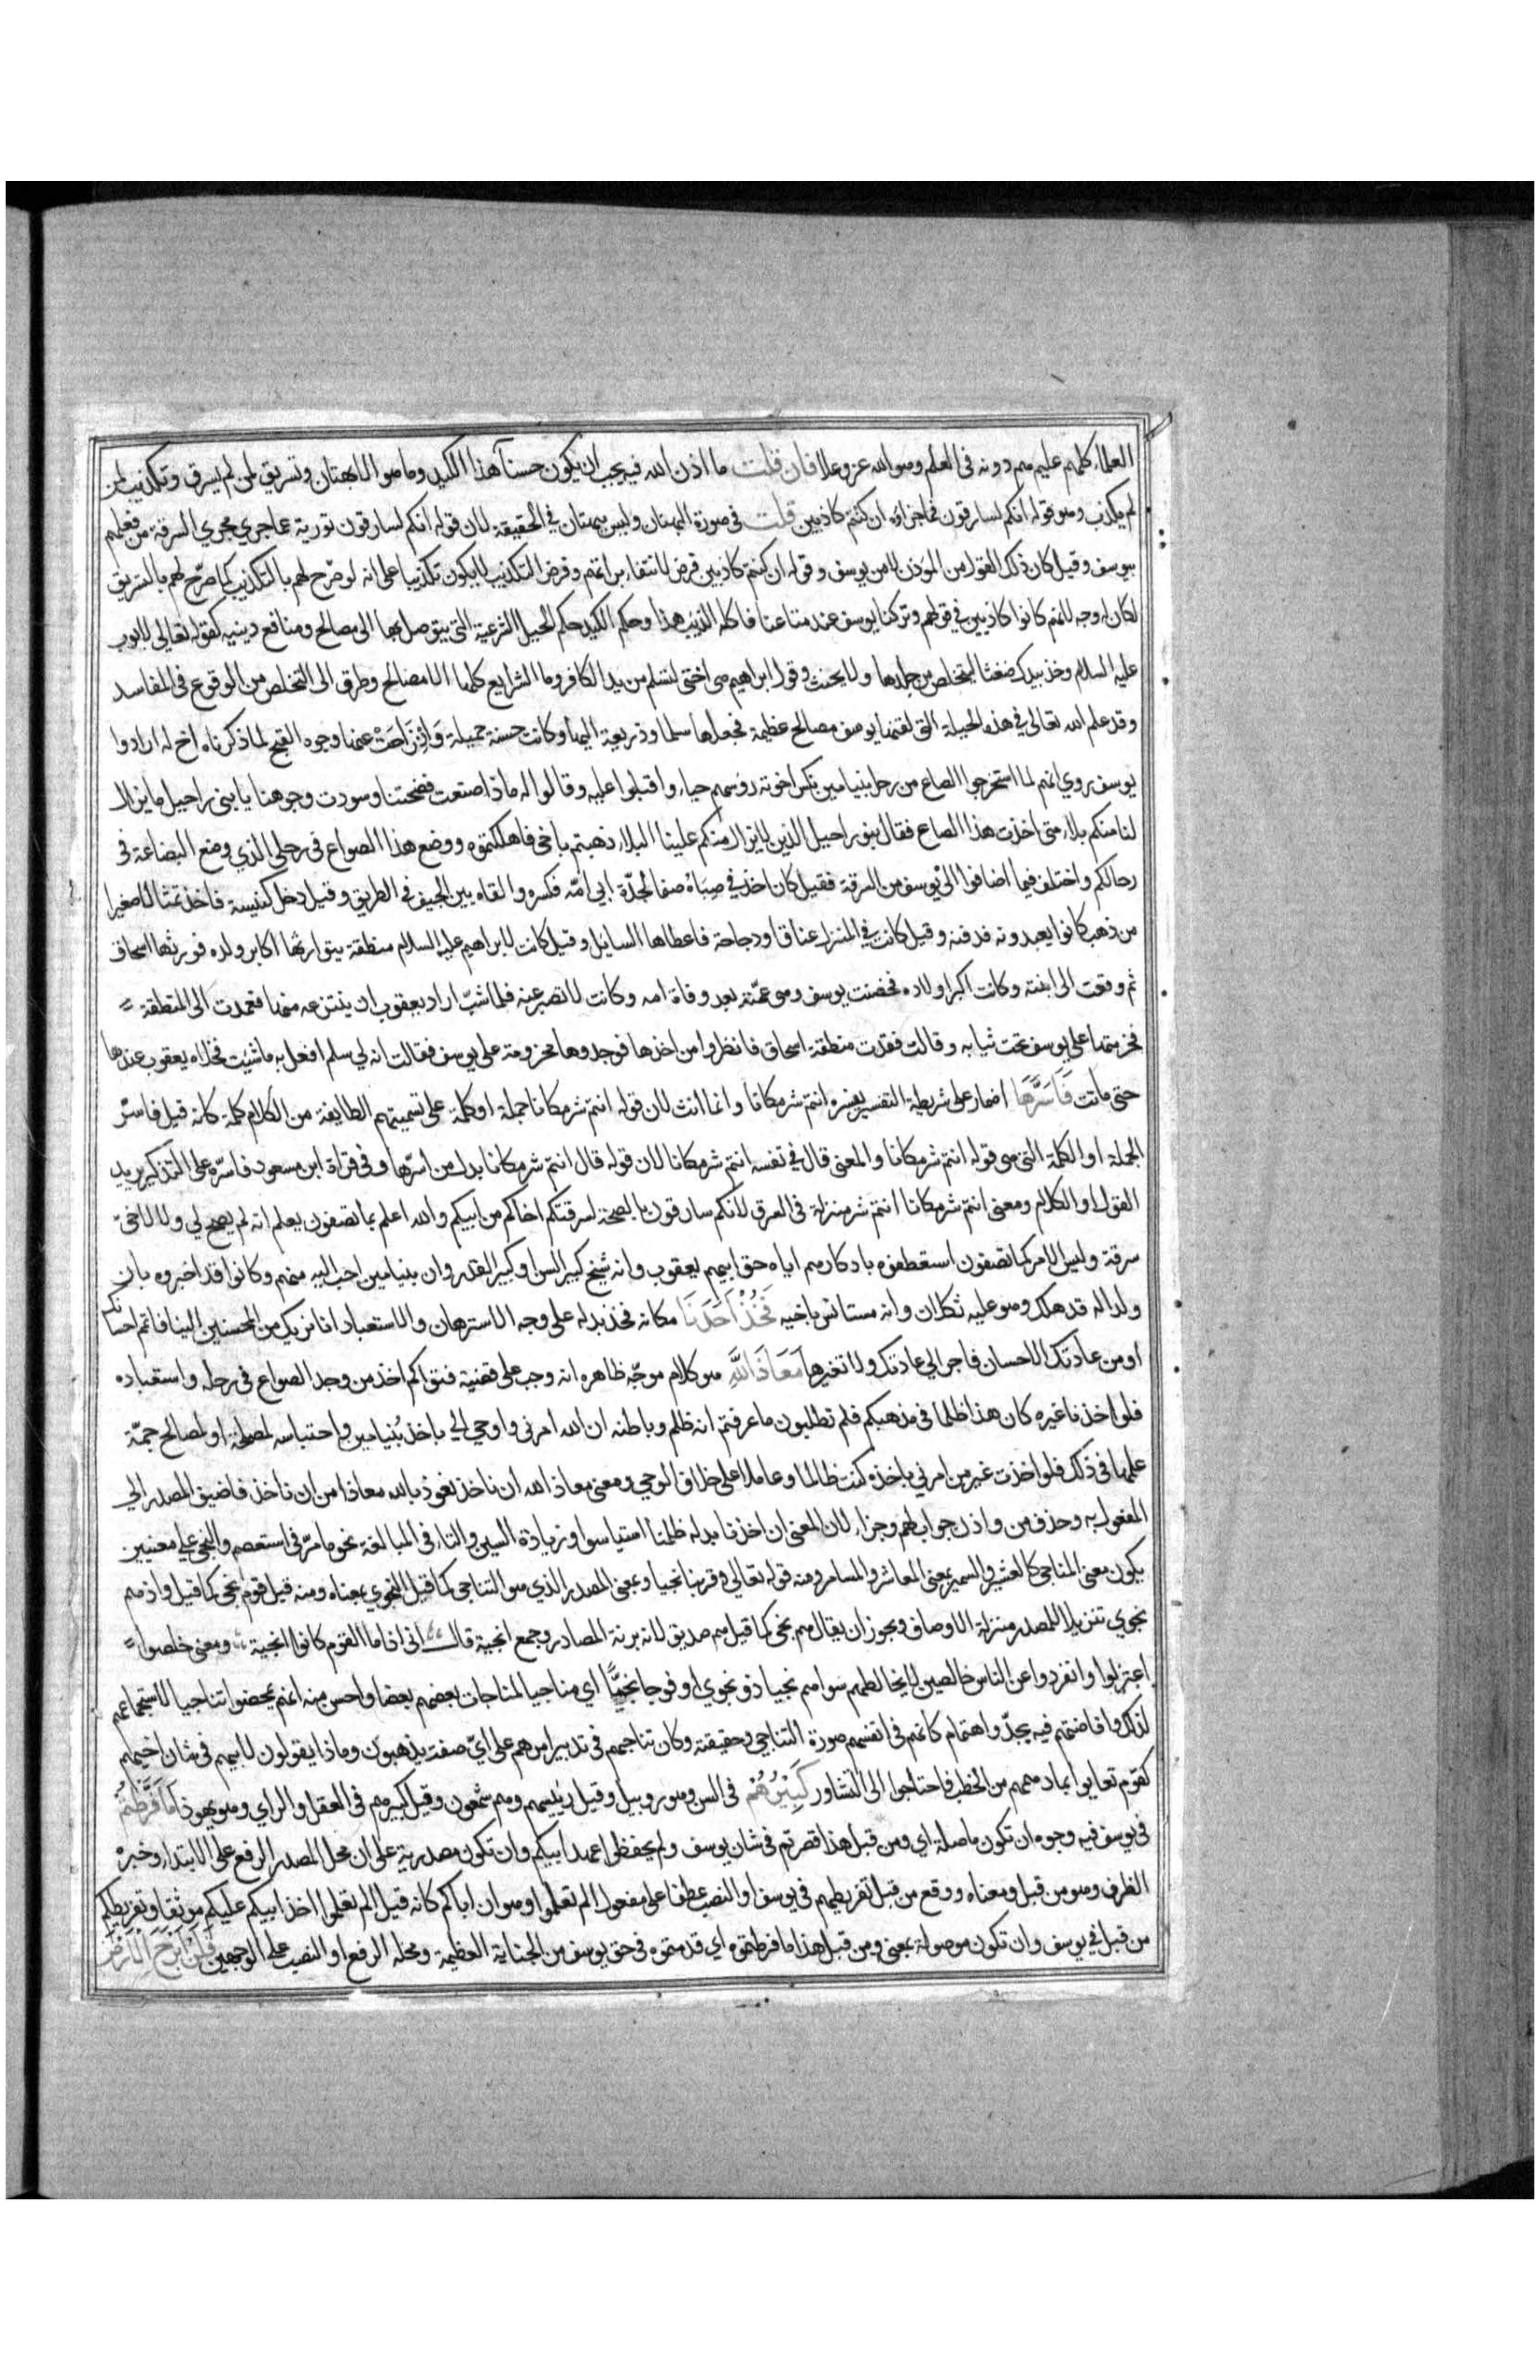 العلماء كلهم عليم هم دونه في العلم وهو الله عز وعلا فان قلت ما اذن الله فيه يجب ان يكون حسنا فمن اي وجه حسن هذا الكيد وما هو الا بهتان وتسريق لمن لم يسرق وتكذيب لمن
لم يكذب وهو قوله انكم لسارقون فما جزاؤه ان كنتم كاذبين قلت في صورة البهتان وليس ببهتان في الحقيقة لان قوله انكم لسارقون تورية عما جرى مجرى السرقة من فعلهم
بيوسف وقيل كان ذلك القول من المؤذن لا من يوسف وقوله ان كنتم كاذبين فرض لانتفاء براتهم وفرض التكذيب لا يكون تكذيبا على انه لو صرح لهم بالتكذيب كما صرح لهم بالتسريق
لكان له وجه لانهم كانوا كاذبين في قولهم وتركنا يوسف عند متاعنا فاكله الذئب هذا وحكم الكيد حكم الحيل الشرعية التي يتوصل بها الى مصالح ومنافع دينيه كقوله تعالى لايوب
عليه السلام وخذ بيدك ضغثا ليتخلص من جلدها ولا يحنث وقول ابراهيم هي اختي لتسلم من يد الكافر وما الشرايع كلها الا مصالح وطرق الى التخلص من الوقوع في المفاسد
وقد علم الله تعالى في هذه الحيلة التي لقنها يوسف مصالح عظيمة فجعلها سلما وذريعة اليها وكانت حسنة جميلة وانزاحت عنها وجوه القبح لما ذكرناه اخ له ارادوا
يوسف روي انهم لما استخرجوا الصاع من رحل بنيامين نكس اخوته رؤسهم حياء واقبلوا عليه وقالوا له ماذا صنعت فضحتنا وسودت وجوهنا يا بني راحيل ما يزال
لنا منكم بلاء متى اخذت هذا الصاع فقال بنو راحيل الذين لا يزال منكم علينا البلاء ذهبتم باخي فاهلكتموه ووضع هذا الصواع في رحلي الذي وضع البضاعة في
رحالكم واختلف فيما اضافوا الى يوسف من السرقة فقيل كان اخذ في صباه صنما لجدة ابي امه فكسره والقاه بين الجيف في الطريق وقيل دخل كنيسة فاخذ تمثالا صغيرا
من ذهب كانوا يعبدونه فدفنه وقيل كانت في المنزل عناق او دجاجة فاعطاها السايل وقيل كانت لابراهيم عليه السلام منطقة يتوارثها اكابر ولده فورثها اسحاق
ثم وقعت الى ابنته وكانت اكبر اولاده فحضنت يوسف وهي عمته بعد وفاة امه وكانت لا تصبر عنه فلما شب اراد يعقوب ان ينتزعه منها فعمدت الى المنطقة
فحزمتها على يوسف تحت ثيابه وقالت فقدت منطقة اسحاق فانظروا من اخذها فوجدوها محزومة على يوسف فقالت انه لي سلم افعل به ما شئت فخلاه يعقوب عندها
حتى ماتت فَاَسَرَّهَا اضمار على شريطة التفسير يفسره انتم شر مكانا وانما انث لان قوله انتم شر مكانا جملة او كلمة على تسميتهم الطايفة من الكلام كلمة كانه قيل فاسر
الجملة او الكلمة التي هي قوله انتم شر مكانا والمعنى قال في نفسه انتم شر مكانا لان قوله قال انتم شر مكانا بدل من اسرها وفي قراة ابن مسعود فاسره على التذكير يريد
القول او الكلام ومعنى انتم شر مكانا انتم شر منزلة في السرق لانكم سارقون بالصحة لسرقتكم اخاكم من ابيكم والله اعلم بما تصفون يعلم انه لم يصح لي ولا لاخي
سرقة وليس الامر كما تصفون استعطفوه باذكارهم اياه حق ابيهم يعقوب وانه شيخ كبير السن او كبير القدر وان بنيامين احب اليه منهم وكانوا قد اخبروه بان
ولدا له قد هلك وهو عليه ثكلان وانه مستانس باخيه فَخُذْ اَحَدَنَا مكانه فخذ بدله على وجه الاسترهان والاستعباد انا نريك من المحسنين الينا فاتم احسانك
او من عادتك الاحسان فاجر الى عادتك ولا تغيرها مَعَاذَ اللهِ هو كلام موجه ظاهره انه وجب على قضية فتواكم اخذ من وجد الصواع في رحله واستعباده
فلو اخذنا غيره كان هذا ظلما في مذهبكم فلم تطلبون ما عرفتم انه ظلم وباطنه ان الله امرني واوحى الي باخذ بنيامين واحتباسه لمصلحة او لمصالح جمة
علمها في ذلك فلو اخذت غير من امرني باخذه كنت ظالما وعاملا على خلاف الوحي ومعنى معاذ الله ان ناخذ نعوذ بالله معاذا من ان ناخذ فاضيف المصدر الى
المفعول به وحذف من واذن جواب لهم وجزاء لان المعنى ان اخذنا بدله ظلمنا استياسوا وزيادة السين والتاء في المبالغة نحو ما مر في استعصم والنجي على معنيين
يكون بمعنى المناجي كالعشير والسمير بمعنى المعاشر والمسامر ومنه قوله تعالى وقربناه نجيا وبمعنى المصدر الذي هو التناجي كما قيل النجوى بمعناه ومنه قيل قوم نجي كما قيل واذ هم
نجوى تنزيلا للمصدر منزلة الاوصاف ويجوز ان يقال هم نجي كما قيل هم صديق لانه بزنة المصادر وجمع انجية قال اني اذا ما القوم كانوا انجية ومعنى خلصوا
اعتزلوا وانفردوا عن الناس خالصين لا يخالطهم سواهم نجيا ذو نجوى او فوجا نجيا اي مناجيا لمناجات بعضهم بعضا واحسن منه انهم تمحضوا تناجيا لاستجماعهم
لذلك وافاضتهم فيه بجد واهتمام كانهم في انفسهم صورة التناجي وحقيقته وكان تناجيهم في تدبير امرهم على اي صفة يذهبون وماذا يقولون لابيهم في شان اخيهم
كقوم تعايوا بما دهمهم من الخطب فاحتاجوا الى التشاور كَبِيرُهُمْ في السن وهو روبيل وقيل رئيسهم وهو شمعون وقيل كبيرهم في العقل والراي وهو يهوذا مَا فَرَّطْتُمْ
في يوسف فيه وجوه ان تكون ما صلة اي ومن قبل هذا قصرتم في شان يوسف ولم تحفظوا عهد ابيكم وان تكون مصدرية على ان محل المصدر الرفع على الابتداء وخبره
الظرف وهو من قبل ومعناه ووقع من قبل تفريطهم في يوسف او النصب عطفا على مفعول الم تعلموا وهو ان اباكم كانه قيل الم تعلموا اخذ ابيكم عليكم موثقا وتفريطكم
من قبل في يوسف وان تكون موصولة بمعنى ومن قبل هذا ما فرطتموه اي قدمتموه في حق يوسف من الجناية العظيمة ومحله الرفع او النصب على الوجهين فَلَنْ اَبْرَحَ الاَرْضَ